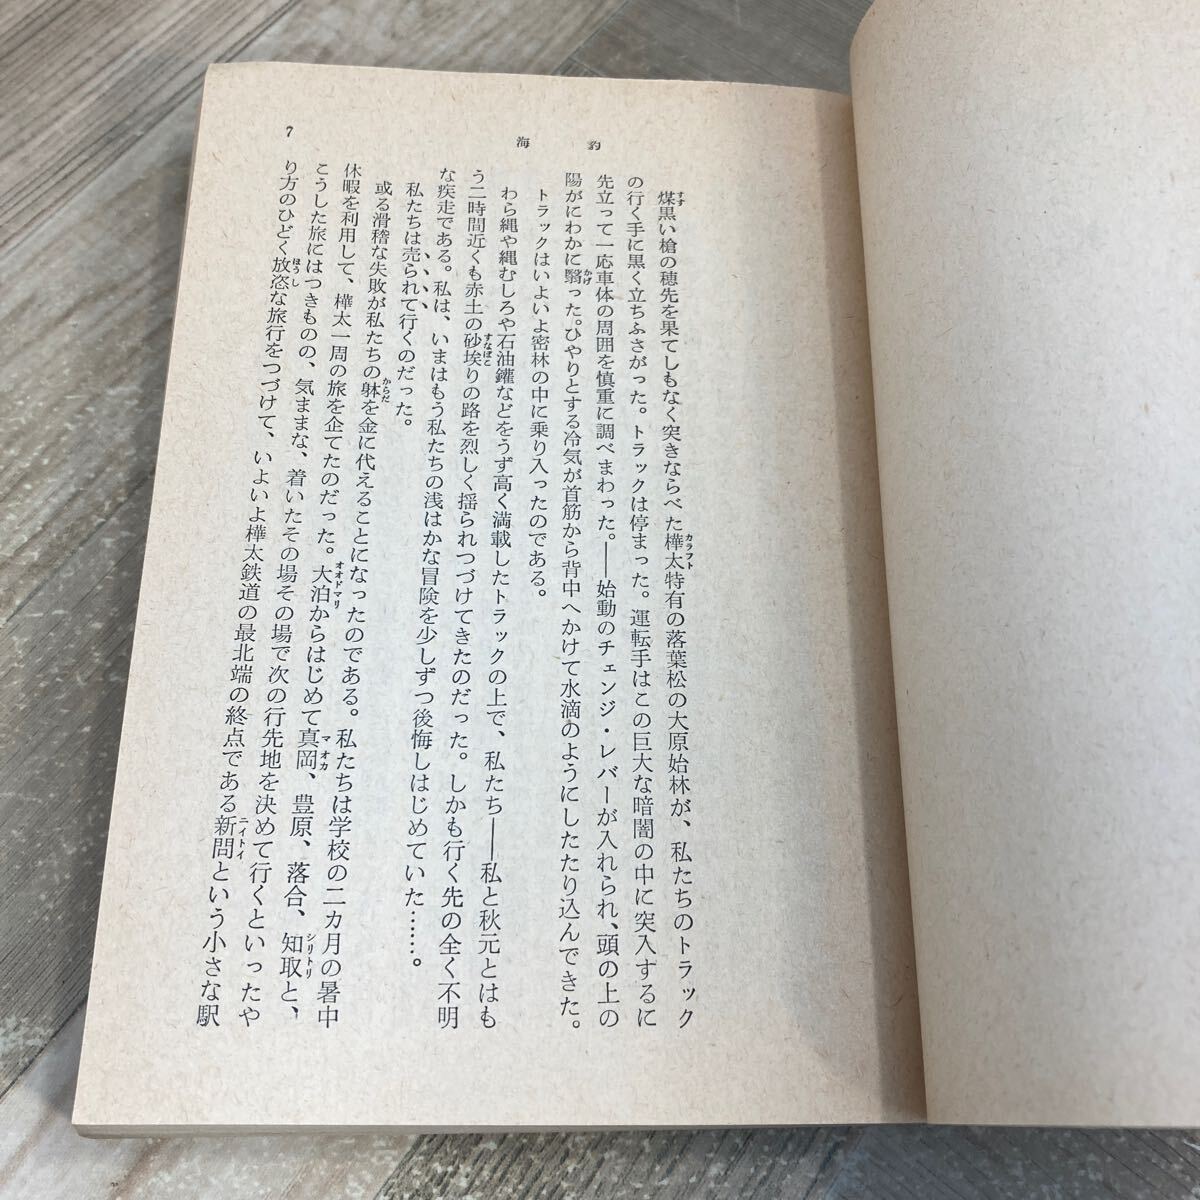 海豹
7
煤黒い槍の穂先を果てしもなく突きならべた樺太特有の落葉松の大原始林が、私たちのトラック
の行く手に黒く立ちふさがった。トラックは停まった。運転手はこの巨大な暗闇の中に突入するに
先立って一応車体の周囲を慎重に調べまわった。――始動のチェンジ・レバーが入れられ、頭の上の
陽がにわかに翳った。ひやりとする冷気が首筋から背中へかけて水滴のようにしたたり込んできた。
トラックはいよいよ密林の中に乗り入ったのである。
わら縄や縄むしろや石油鑵などをうず高く満載したトラックの上で、私たち――私と秋元とはも
う二時間近くも赤土の砂埃りの路を烈しく揺られつづけてきたのだった。しかも行く先の全く不明
な疾走である。私は、いまはもう私たちの浅はかな冒険を少しずつ後悔しはじめていた……。
私たちは売られて行くのだった。
或る滑稽な失敗が私たちの躰を金に代えることになったのである。私たちは学校の二カ月の暑中
休暇を利用して、樺太一周の旅を企てたのだった。大泊からはじめて真岡、豊原、落合、知取と、
こうした旅にはつきものの、気ままな、着いたその場その場で次の行先地を決めて行くといったや
り方のひどく放恣な旅行をつづけて、いよいよ樺太鉄道の最北端の終点である新問という小さな駅